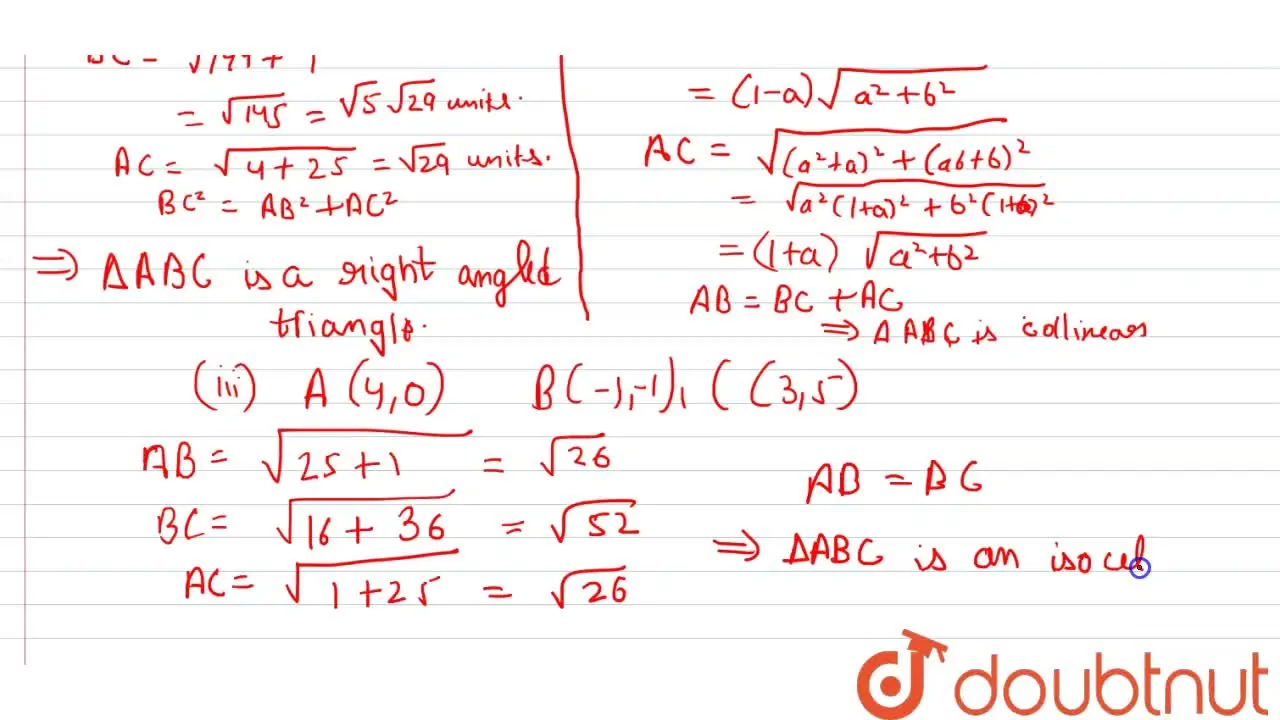 BC = √144 + 1
= √145 = √5 √29 units.
AC = √4 + 25 = √29 units.
BC² = AB² + AC²
⇒ ΔABC is a right angled
triangle.
= (1-a) √a² + b²
AC = √(a²+a)² + (ab+b)²
= √a²(1+a)² + b²(1+a)²
= (1+a) √a²+b²
AB = BC + AC
⇒ Δ ABC is collinear
(iii) A (4,0) B(-1,-1), C (3,5)
AB = √25+1 = √26
BC = √16 + 36 = √52
AC = √1+25 = √26
AB = BC
⇒ ΔABC is an isocel
doubtnut